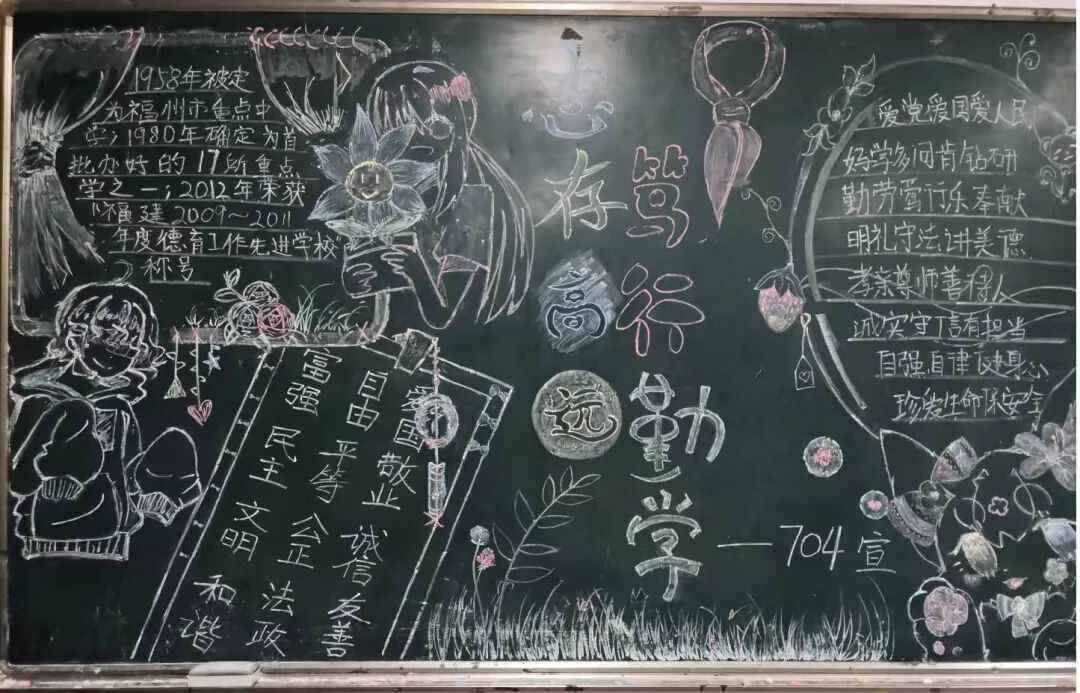 1958年被定
为福州市重点中
学；1980年确定为首
批办好的17所重点
学之一；2012年荣获
“福建2009～2011
年度德育工作先进学校”
称号
志存高远
笃行勤学
—704宣
富强 民主 文明 和谐
自由 平等 公正 法政
爱国 敬业 诚信 友善
爱党爱国爱人民
好学多问肯钻研
勤劳笃行乐奉献
明礼守法讲美德
孝亲尊师善待人
诚实守信有担当
自强自律健身心
珍爱生命保安全